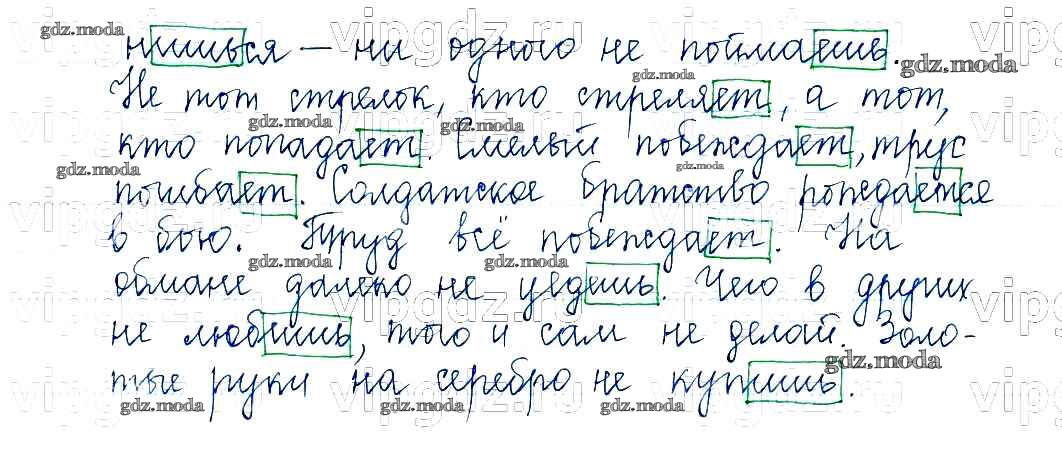 нишься – ни одного не поймаешь.
Не тот стрелок, кто стреляет, а тот,
кто попадает. Смелый побеждает, трус
погибает. Солдатское братство рождается
в бою. Труд всё побеждает. На
обмане далеко не уедешь. Чего в других
не любишь, того и сам не делай. Золо-
тые руки на серебро не купишь.